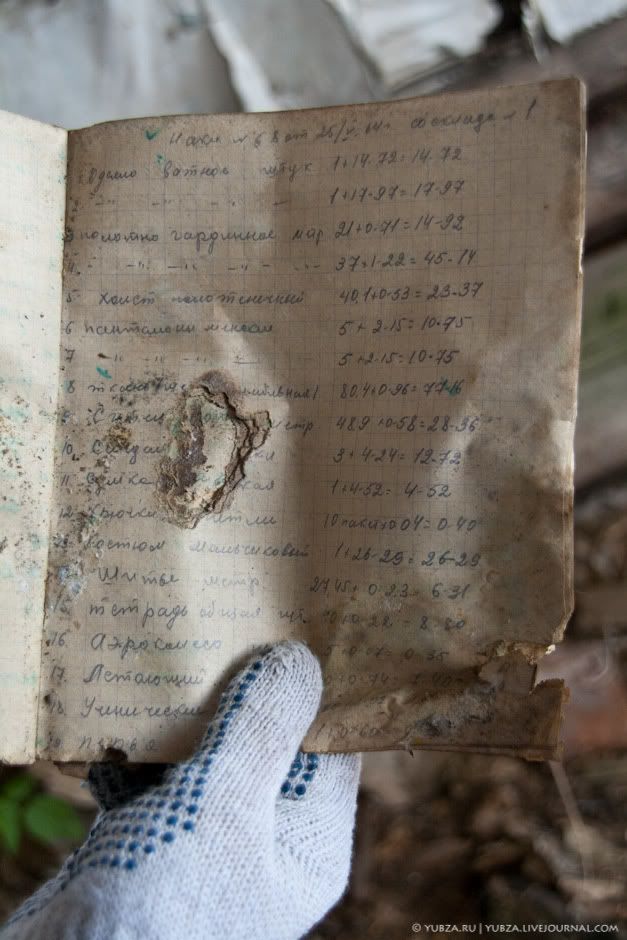 Накл № 68 от 25/V. 64г со склада № 1
1 Одеяло ватное штук 1+14.72=14.72
2. " — " — 1+17-97=17-97
3 полотно гардинное мтр 21+0-71=14-92
4. " — " — " — 37+1-22=45-14
5. Холст полотенечный 40,1+0-53=23-37
6 панталоны женские 5+2-15=10-75
7 " — " — " 5+2-15=10-75
8 ткань 80,4+0-96=77-16
9. мтр 48.9+0-58=28-36
10. 3+4-24=12-72
11. Сумка 1+4-52=4-52
12. Крючки петли 10 пакет+0 04=0-40
13. Костюм мальчиковый 1+26-29=26-29
Шитье мтр 27,45+0-23=6-31
15. тетрадь общая шт.
16. Аэроколесо 5+0-07=0-35
17. Летающий
18. Ученические
19. перья
© YUBZA.RU | YUBZA.LIVEJOURNAL.COM